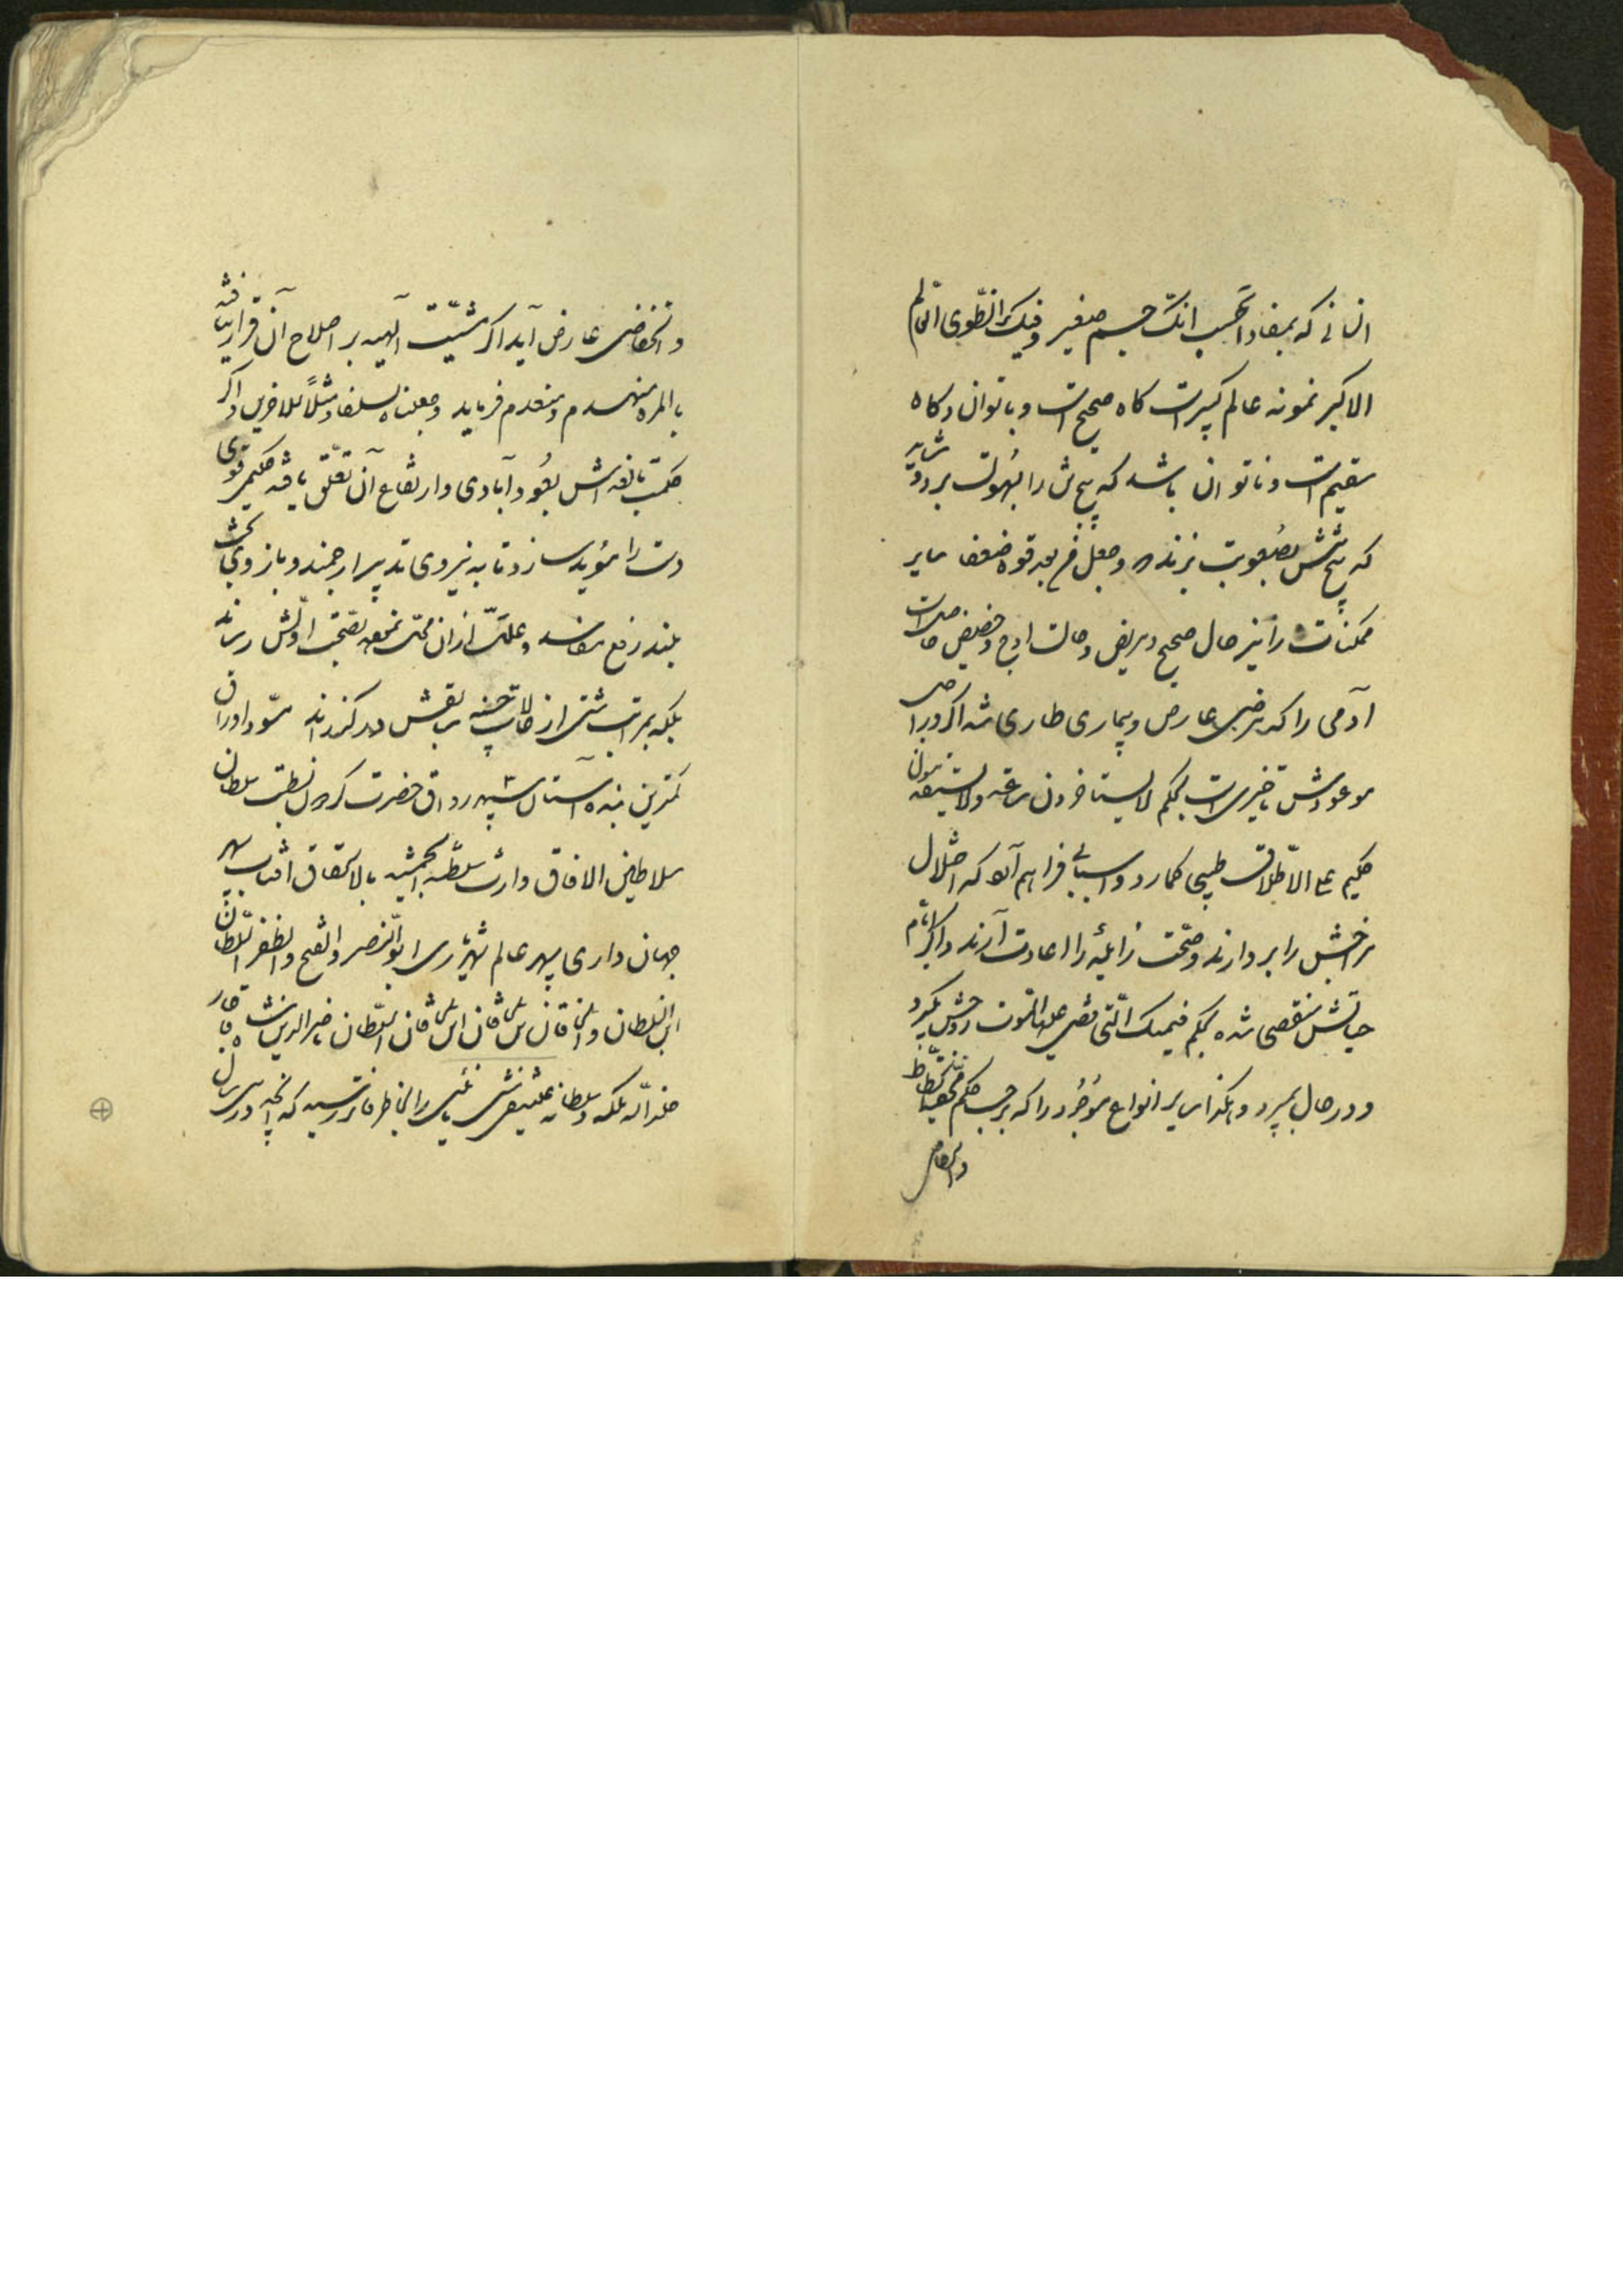 انسانی که بمفاد اتحسب انک جسم صغیر و فیک انطوی العالم
الاکبر نمونه عالم کبیر است کاه صحیح است و با توان و کاه
سقیم است و ناتوان باشد که پنجه‌اش را بسهولت بر رو شیر
که پنجه‌اش بصعوبت زند و جعل من بعد قوة ضعفا سایر
ممکنات را نیز حال صحیح و مریض و حالت اوج و حضیض حاصل است
آدمی را که مرضی عارض و بیماری طاری شد اکر در اجل
موعودش تاخیری است بحکم لا یستاخرون ساعة ولا یستقدمون
حکیم علی الاطلاق طبیبی کمارد و اسبابی فراهم آورد که اختلال
مزاجش را بردارند و صحت زایله را اعادت آرند و اکر ایام
حیاتش منقضی شده بحکم فیمسک التی قضی علیها الموت روحش بکیرد
و در حال بمیرد و هکذا سایر انواع موجود را که بر حسب حکم انحطاط
و انخفاض
و انخفاضی عارض آید اکر مشیت الهیه بر اصلاح آن قرار نیافته
بالمره منهدم و منعدم فرماید و جعلناه سلفا و مثلاً للاخرین و اکر
حکمت بالغه‌اش بعود آبادی و ارتفاع آن تعلق یافته حکیمی قوی
دست را مؤید سازد تا به نیروی تدبیر ارجمند و بازوی بخت
بلند رفع مفاسد و علت از آن محل نموده بصحت اولش رساند
بلکه بمراتب شتی از حالات حسنه سابقش در کذراند مسود اوراق
کمترین بنده آستان سپهر رواق حضرت کردون بسطت سلطان
سلاطین الافاق وارث سلطنة الجمشید بالاستحقاق افتاب سپهر
جهان داری سپهر عالم شهریاری ابوالنصر و الفتح و الظفر السلطان
ابن السلطان و الخاقان بن الخاقان ابن الخاقان السلطان ناصرالدین شاه قاجار
خلد الله ملکه و سلطانه علینقی را بخاطر فاتر رسید که آنچه در سی سال